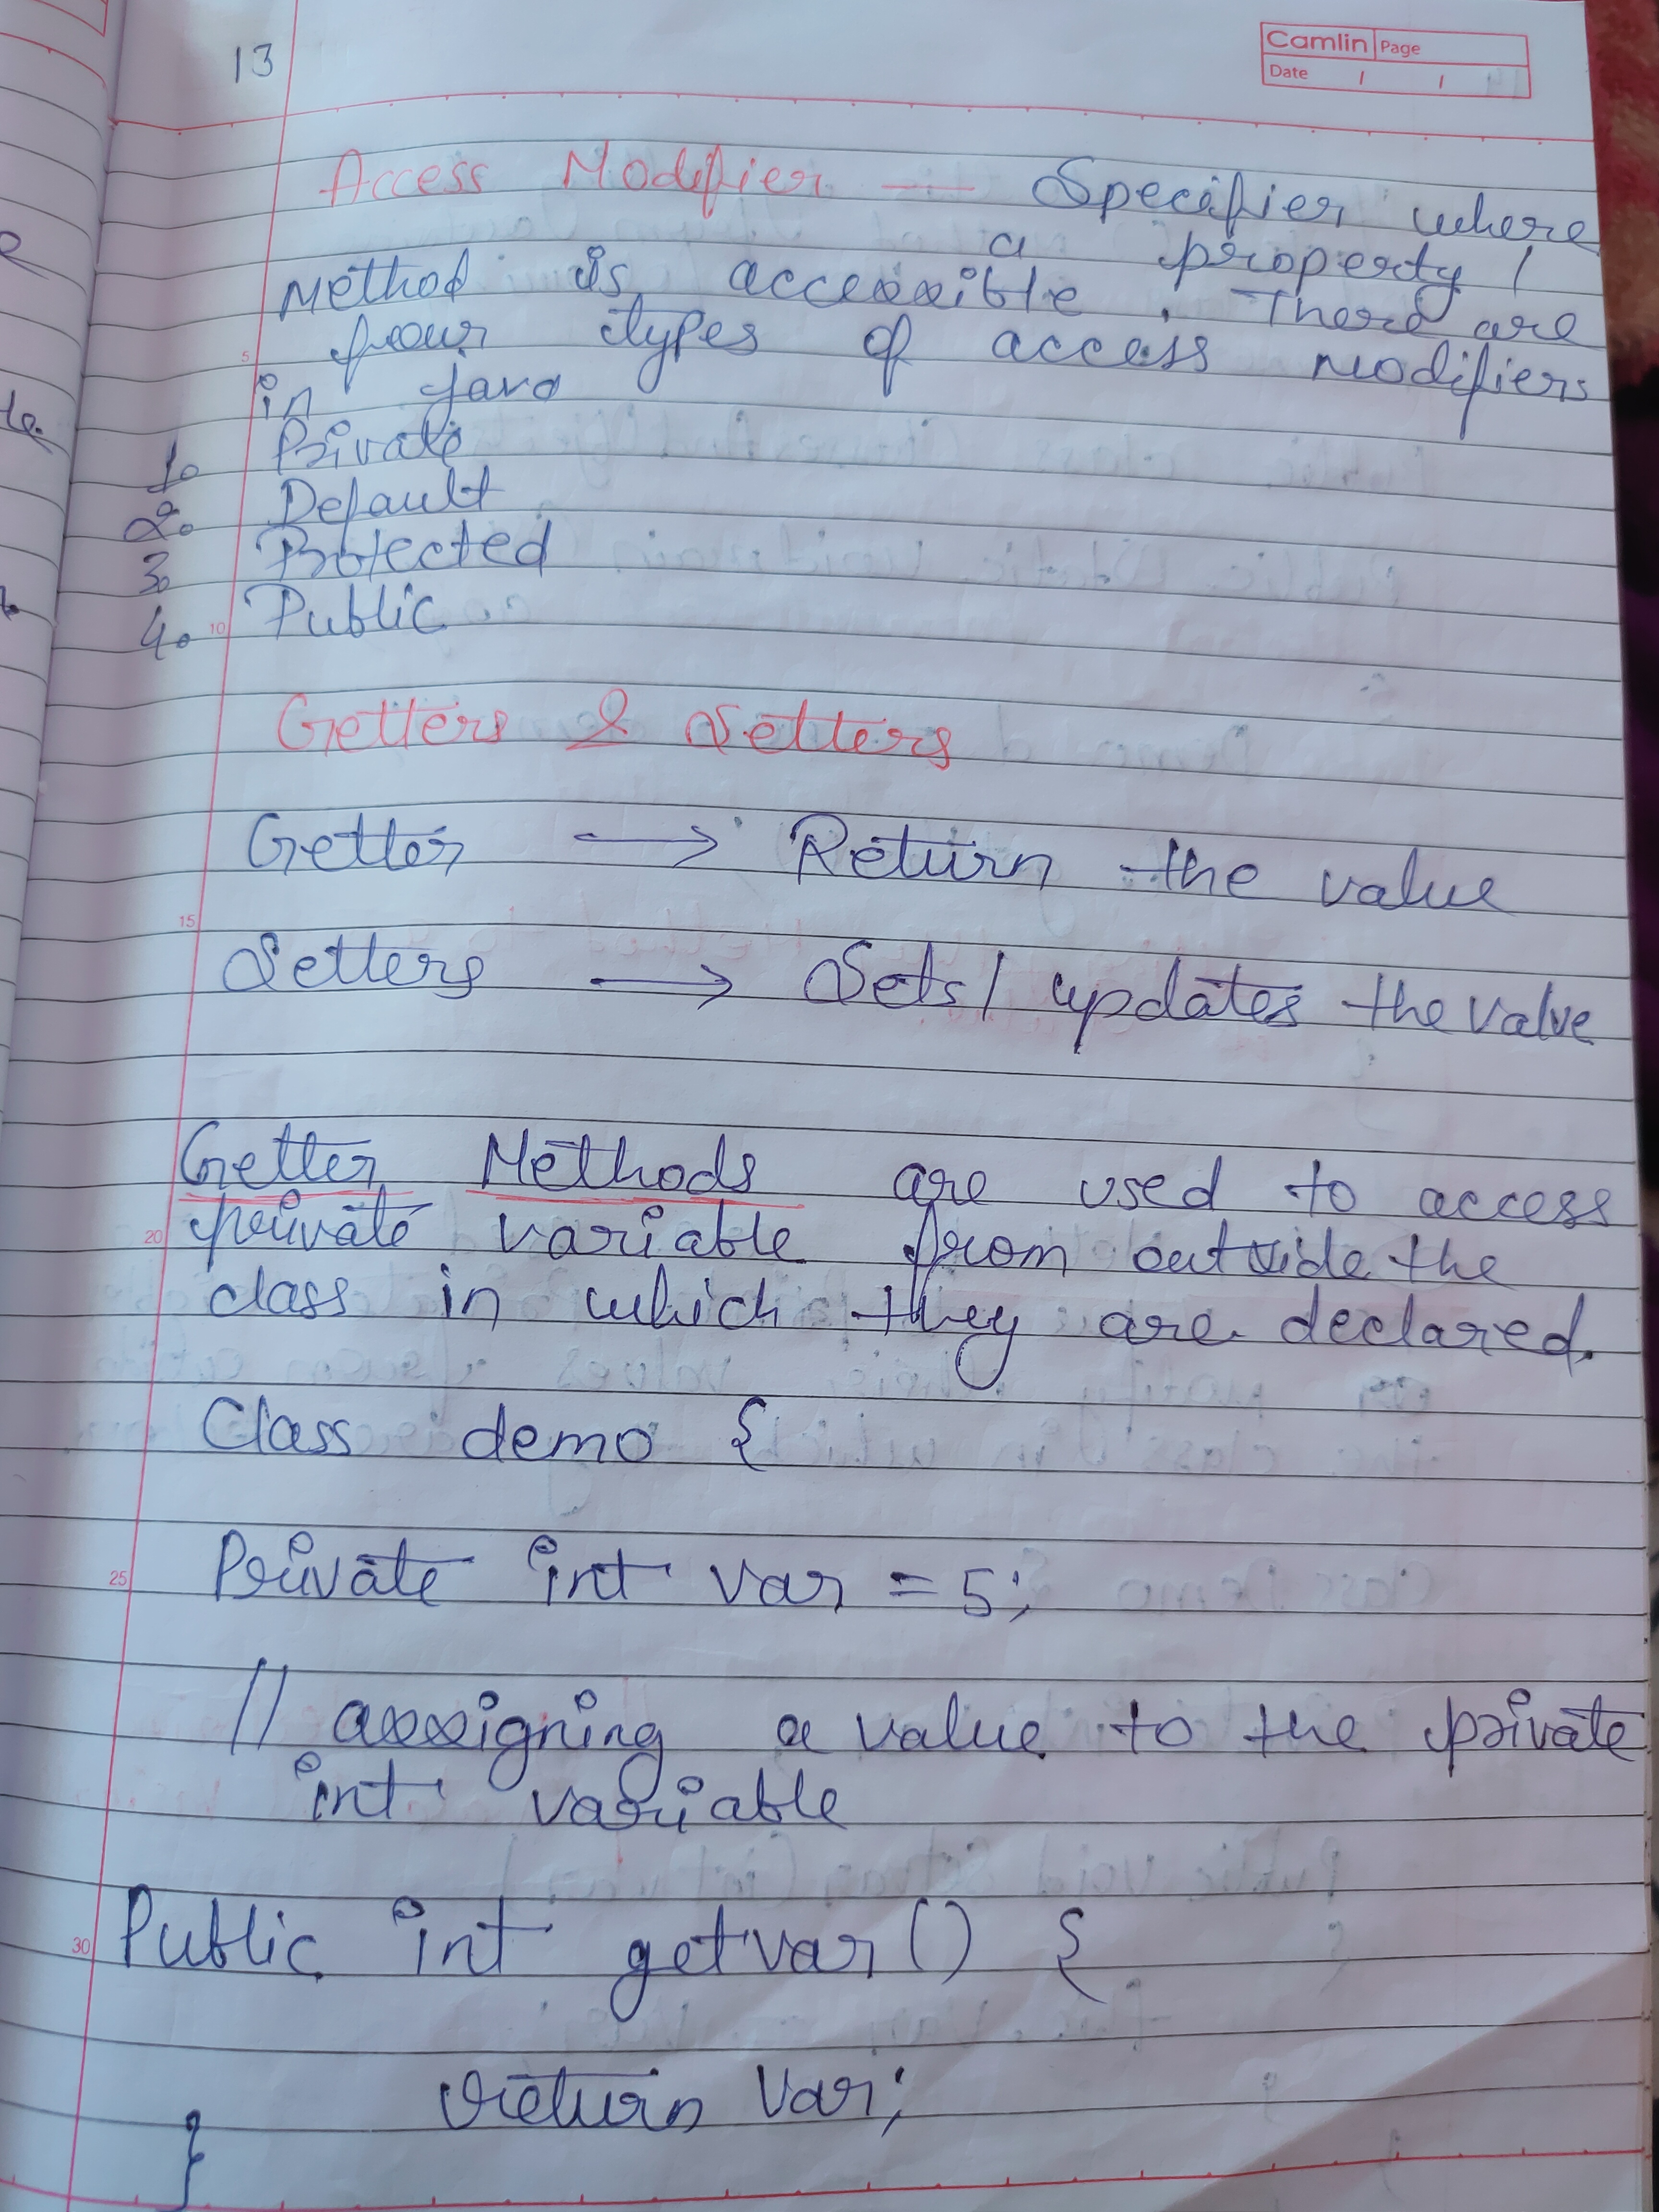 13
Camlin Page
Date / /
Access Modifier — Specifier where
a property /
Method is accessible. There are
four types of access modifiers
5
in java
1. Private
2. Default
3. Protected
4. Public
10
Getters & Setters
Getter → Return the value
15
Setters → Sets / updates the value
Getter Methods are used to access
20 private variable from outside the
class in which they are declared.
Class demo {
25 Private int var = 5;
// assigning a value to the private
int variable
30 Public int getvar() {
return var;
}